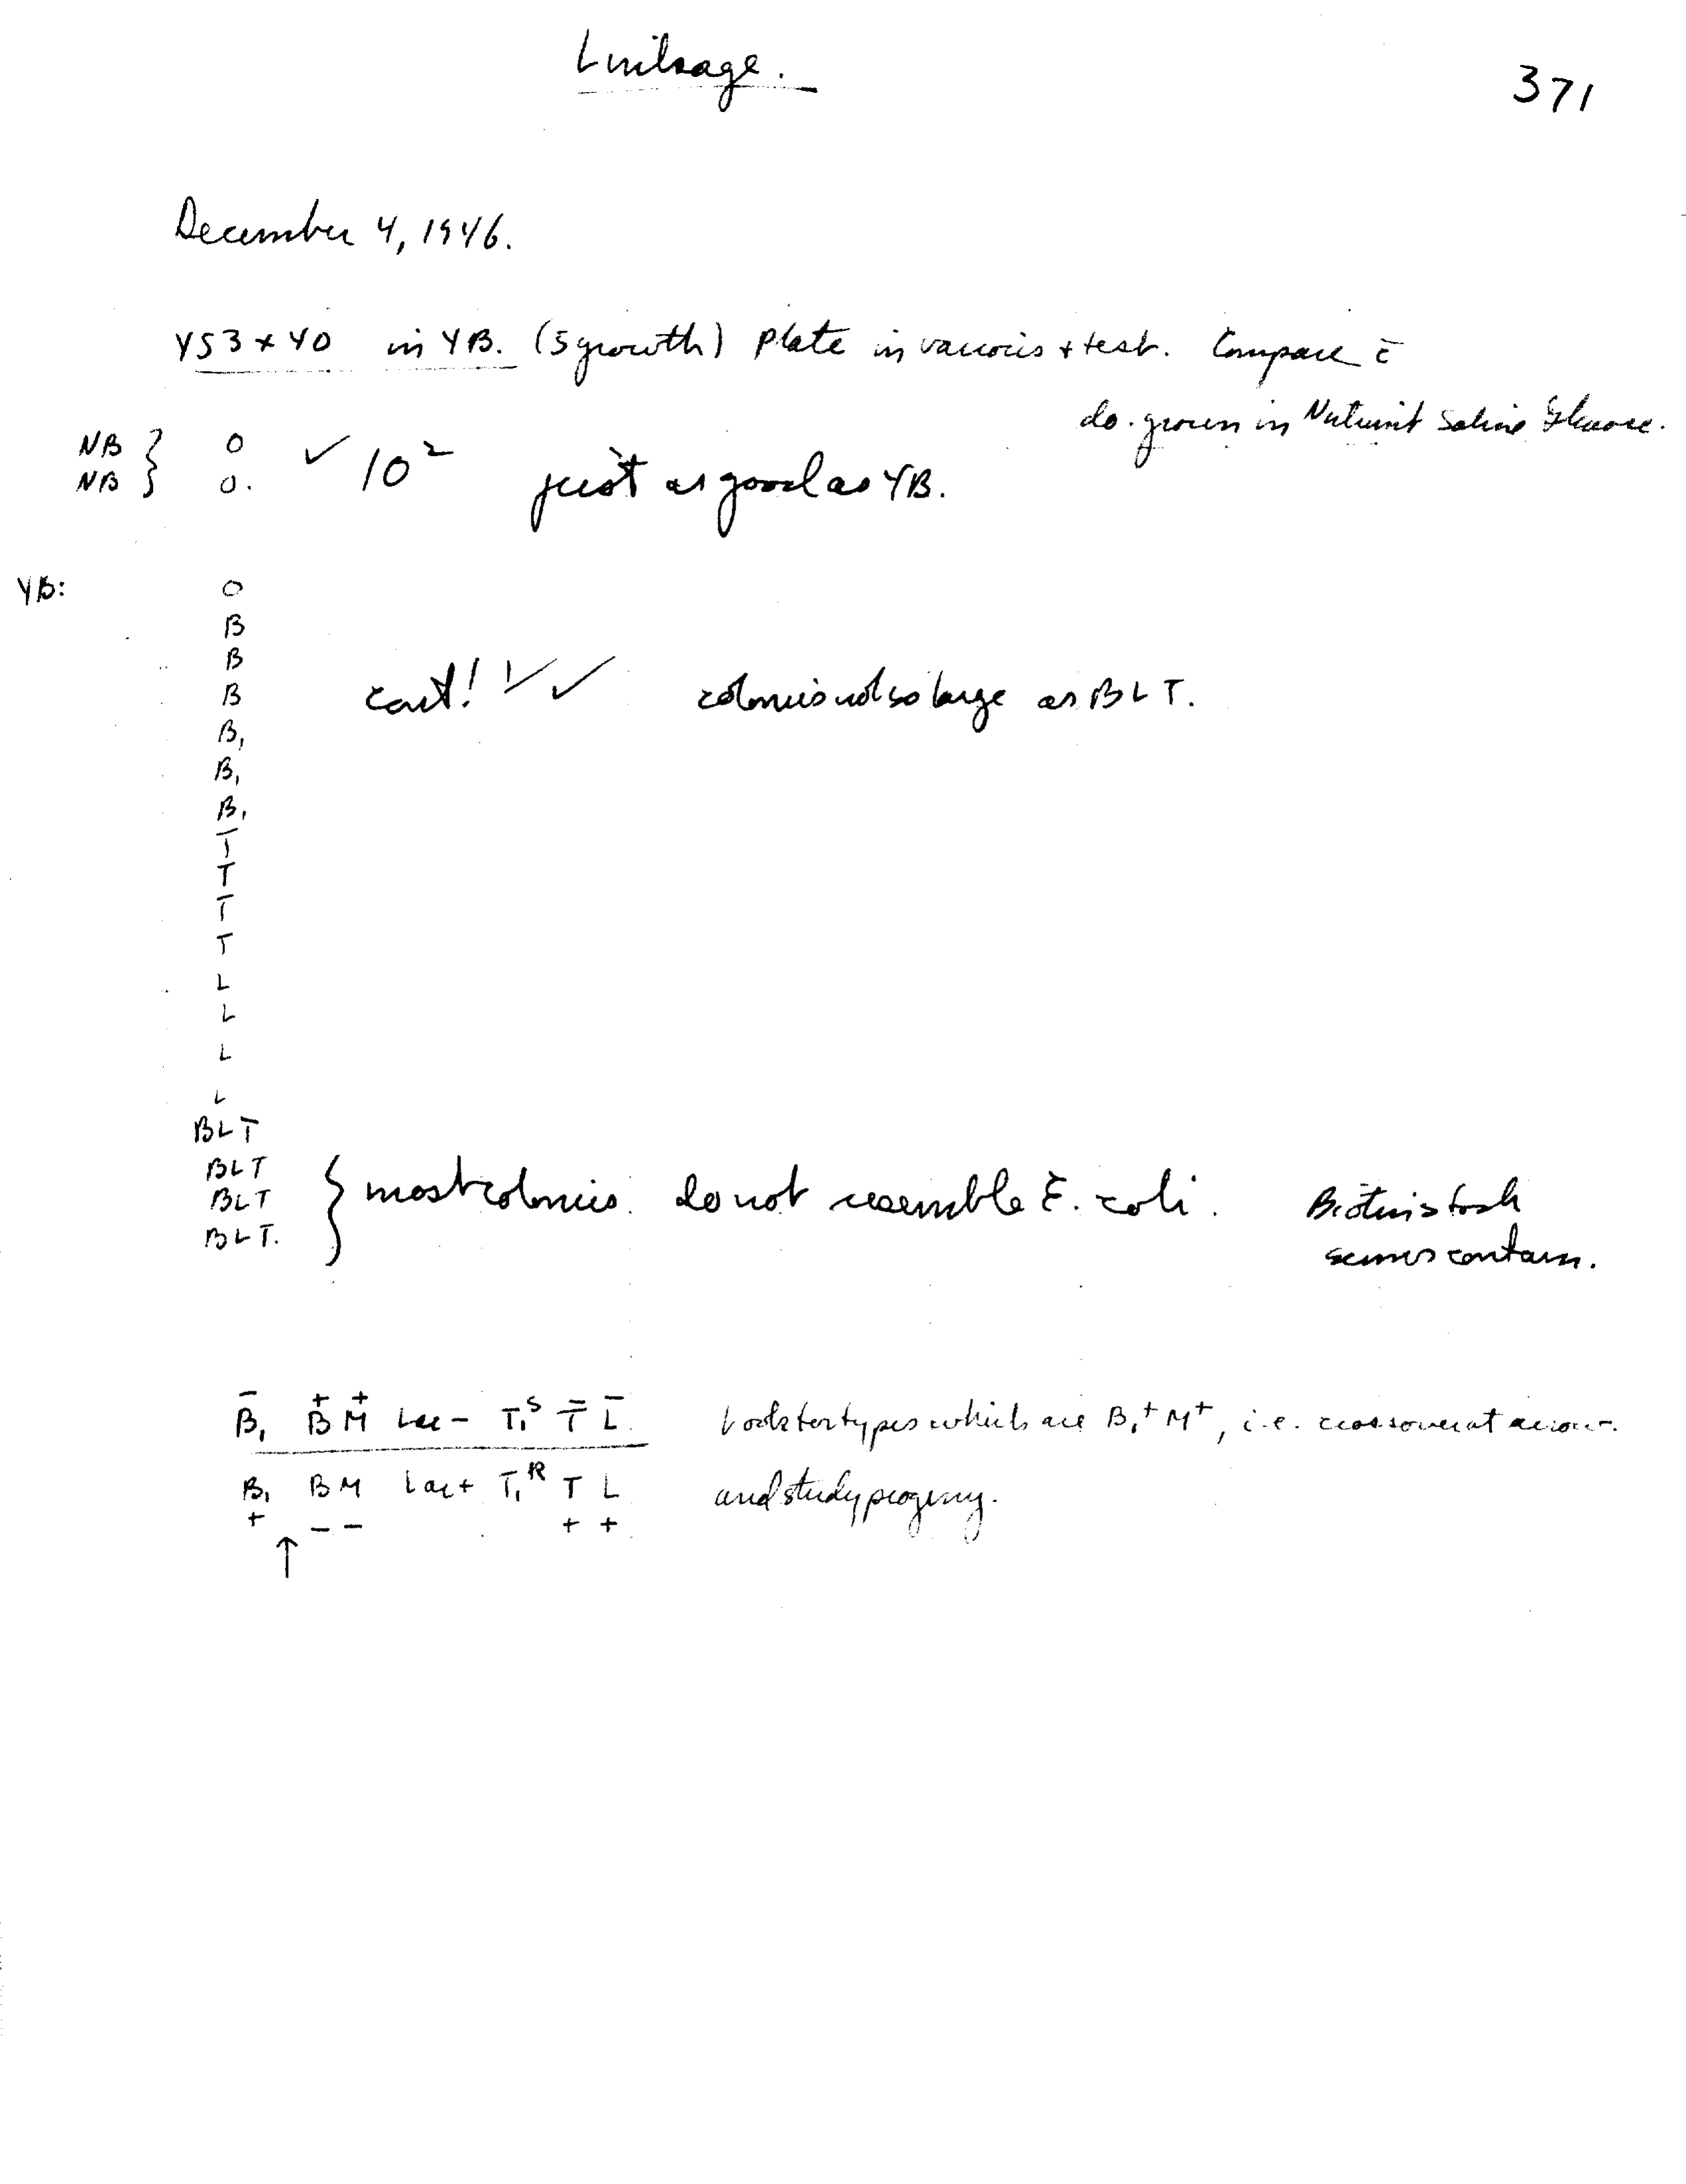 Linkage.
371
December 4, 1946.
Y53 x Y0 in YB. (5 growth) Plate in various + test. Compare c̄
do. grown in Nutrient Saline Glucose.
NB } 0 ✓ 10² just as good as YB.
NB } 0.
YB: 0
B
B
B cont! ✓ ✓ colonies not so large as BLT.
B₁
B₁
B₁
T
T
T
T
L
L
L
L
BLT
BLT } most colonies do not resemble E. coli. Biotin stock
BLT seems contam.
BLT.
B₁⁻ B⁺ M⁺ Lac- T₁ˢ T⁻ L⁻ Look for types which are B₁⁺ M⁺, i.e. crossover at arrow.
B₁ B M Lac+ T₁ᴿ T L and study progeny.
+ - - + +
↑